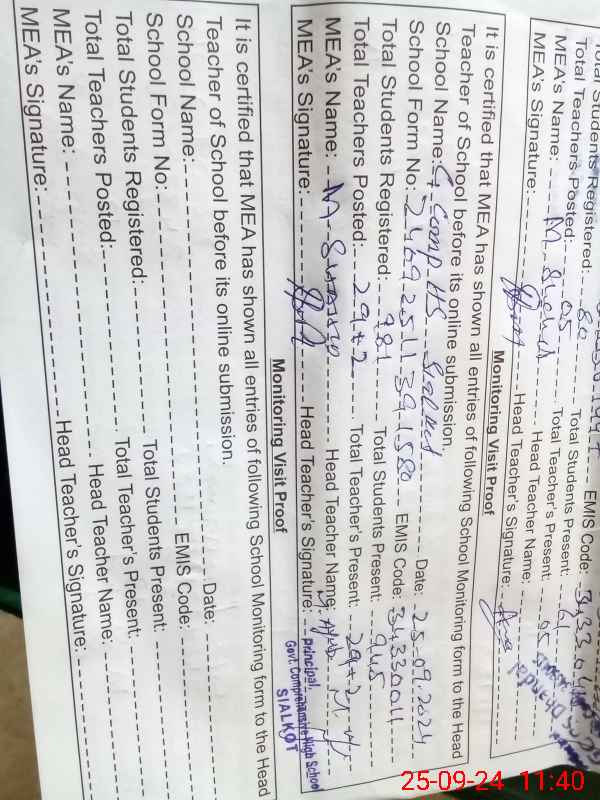 Total Students Registered: 80 EMIS Code:
Total Teachers Posted: 05 Total Students Present: 61
MEA's Name: M. Total Teacher's Present: 05
MEA's Signature: Head Teacher Name:
Head Teacher's Signature:
Monitoring Visit Proof
It is certified that MEA has shown all entries of following School Monitoring form to the Head
Teacher of School before its online submission.
School Name: G Comp. HS Sialkot Date: 25-09-2024
School Form No: EMIS Code: 34330011
Total Students Registered: 981 Total Students Present: 945
Total Teachers Posted: 29+2 Total Teacher's Present: 29+2
MEA's Name: M. Head Teacher Name: M. Ayub
MEA's Signature: Head Teacher's Signature:
Principal,
Govt. Comprehensive High School
SIALKOT
Monitoring Visit Proof
It is certified that MEA has shown all entries of following School Monitoring form to the Head
Teacher of School before its online submission.
School Name: Date:
School Form No: EMIS Code:
Total Students Registered: Total Students Present:
Total Teachers Posted: Total Teacher's Present:
MEA's Name: Head Teacher Name:
MEA's Signature: Head Teacher's Signature:
25-09-24 11:40